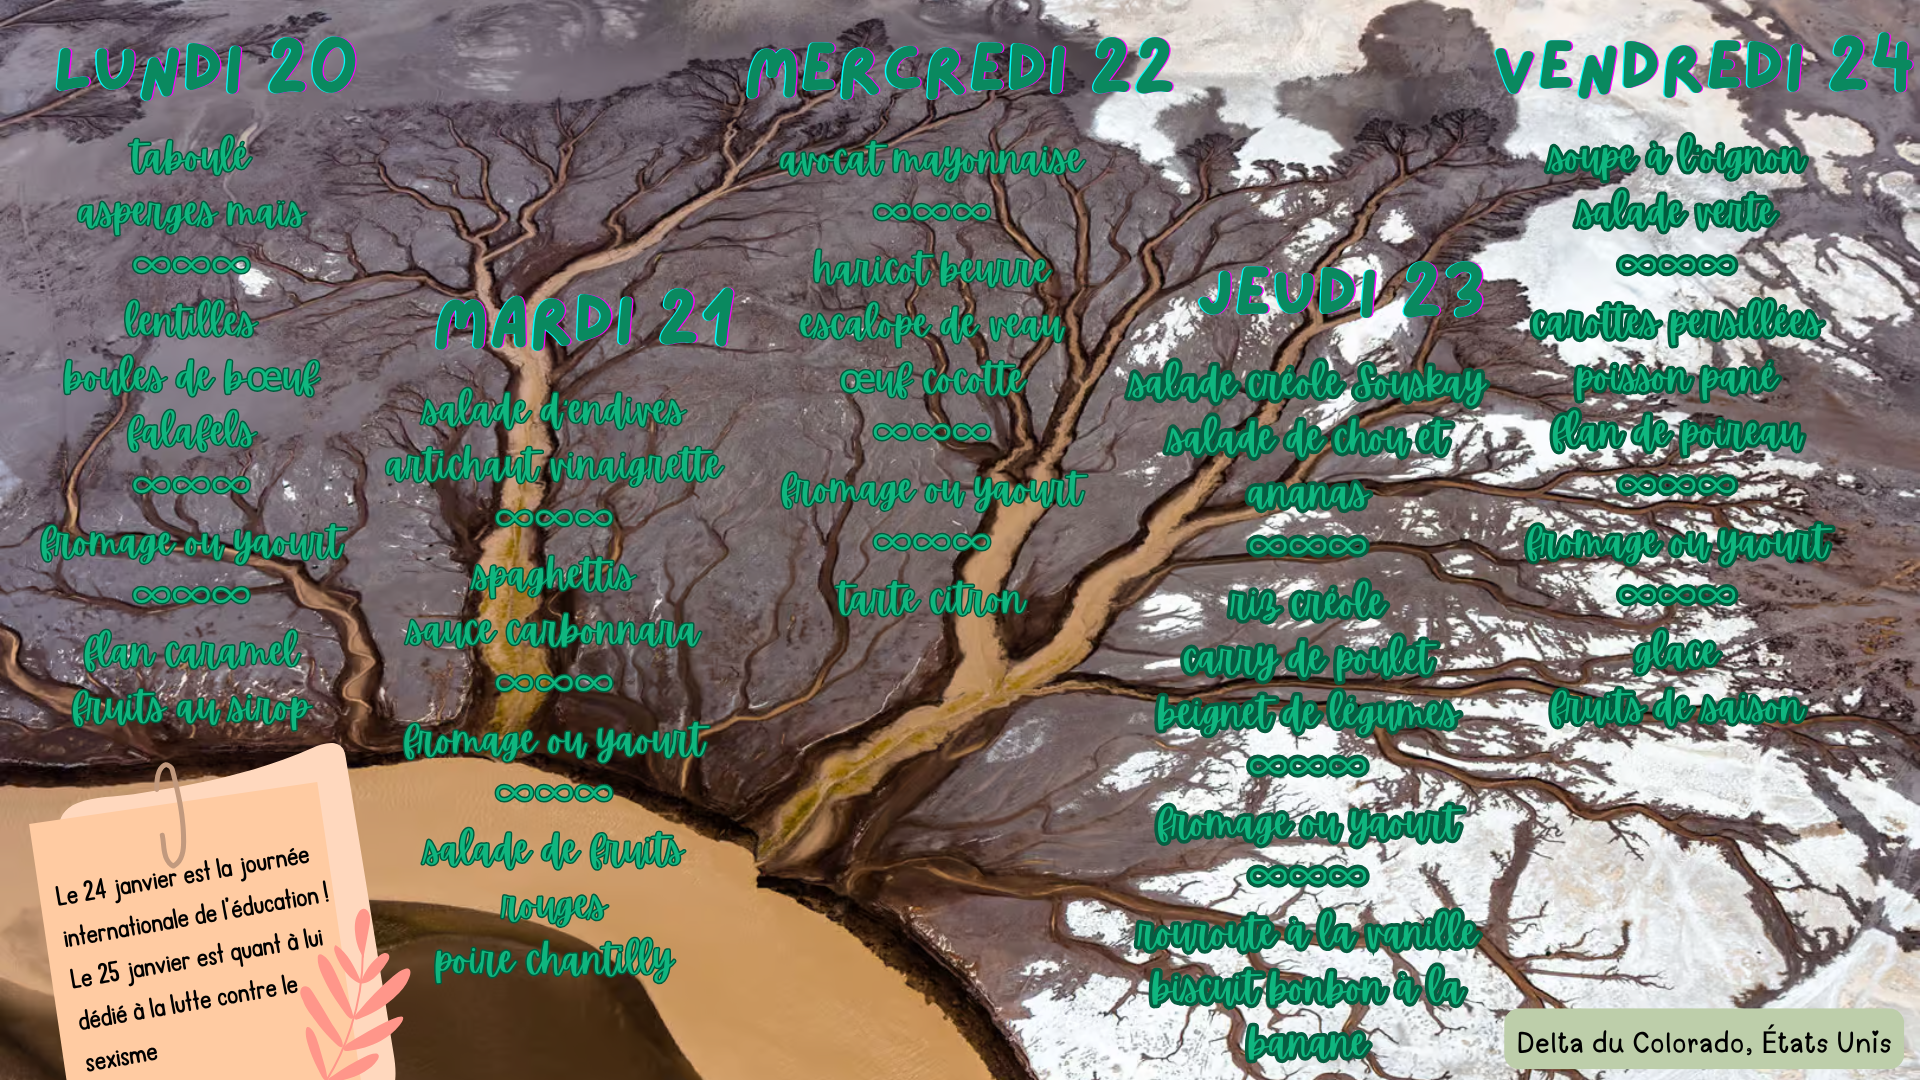 LUNDI 20
taboulé
asperges maïs
∞∞∞
lentilles
boules de bœuf
falafels
∞∞∞
fromage ou yaourt
∞∞∞
flan caramel
fruits au sirop
MARDI 21
salade d'endives
artichaut vinaigrette
∞∞∞
spaghettis
sauce carbonnara
∞∞∞
fromage ou yaourt
∞∞∞
salade de fruits
rouges
poire chantilly
MERCREDI 22
avocat mayonnaise
∞∞∞
haricot beurre
escalope de veau
œuf cocotte
∞∞∞
fromage ou yaourt
∞∞∞
tarte citron
JEUDI 23
salade créole Souskay
salade de chou et
ananas
∞∞∞
riz créole
carry de poulet
beignet de légumes
∞∞∞
fromage ou yaourt
∞∞∞
rouroute à la vanille
biscuit bonbon à la
banane
VENDREDI 24
soupe à l'oignon
salade verte
∞∞∞
carottes persillées
poisson pané
flan de poireau
∞∞∞
fromage ou yaourt
∞∞∞
glace
fruits de saison
Le 24 janvier est la journée
internationale de l'éducation !
Le 25 janvier est quant à lui
dédié à la lutte contre le
sexisme
Delta du Colorado, États Unis